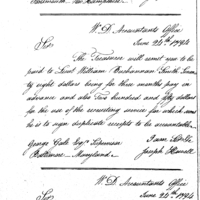 W D Accountants Office
Sir June 24th 1794
The Treasurer will remit now to be
paid to Lieut William Buchannan Fourth Twenty
eight dollars being for three months pay in
advance and also Two hundred and fifty dollars
for the use of the recruiting service for which
he is to sign duplicate receipts to be accountable
I am Sir &c
George Gale Esqr Supervisor Joseph Howell
Baltimore Maryland
W D Accountants Office
Sir June 24th 1794